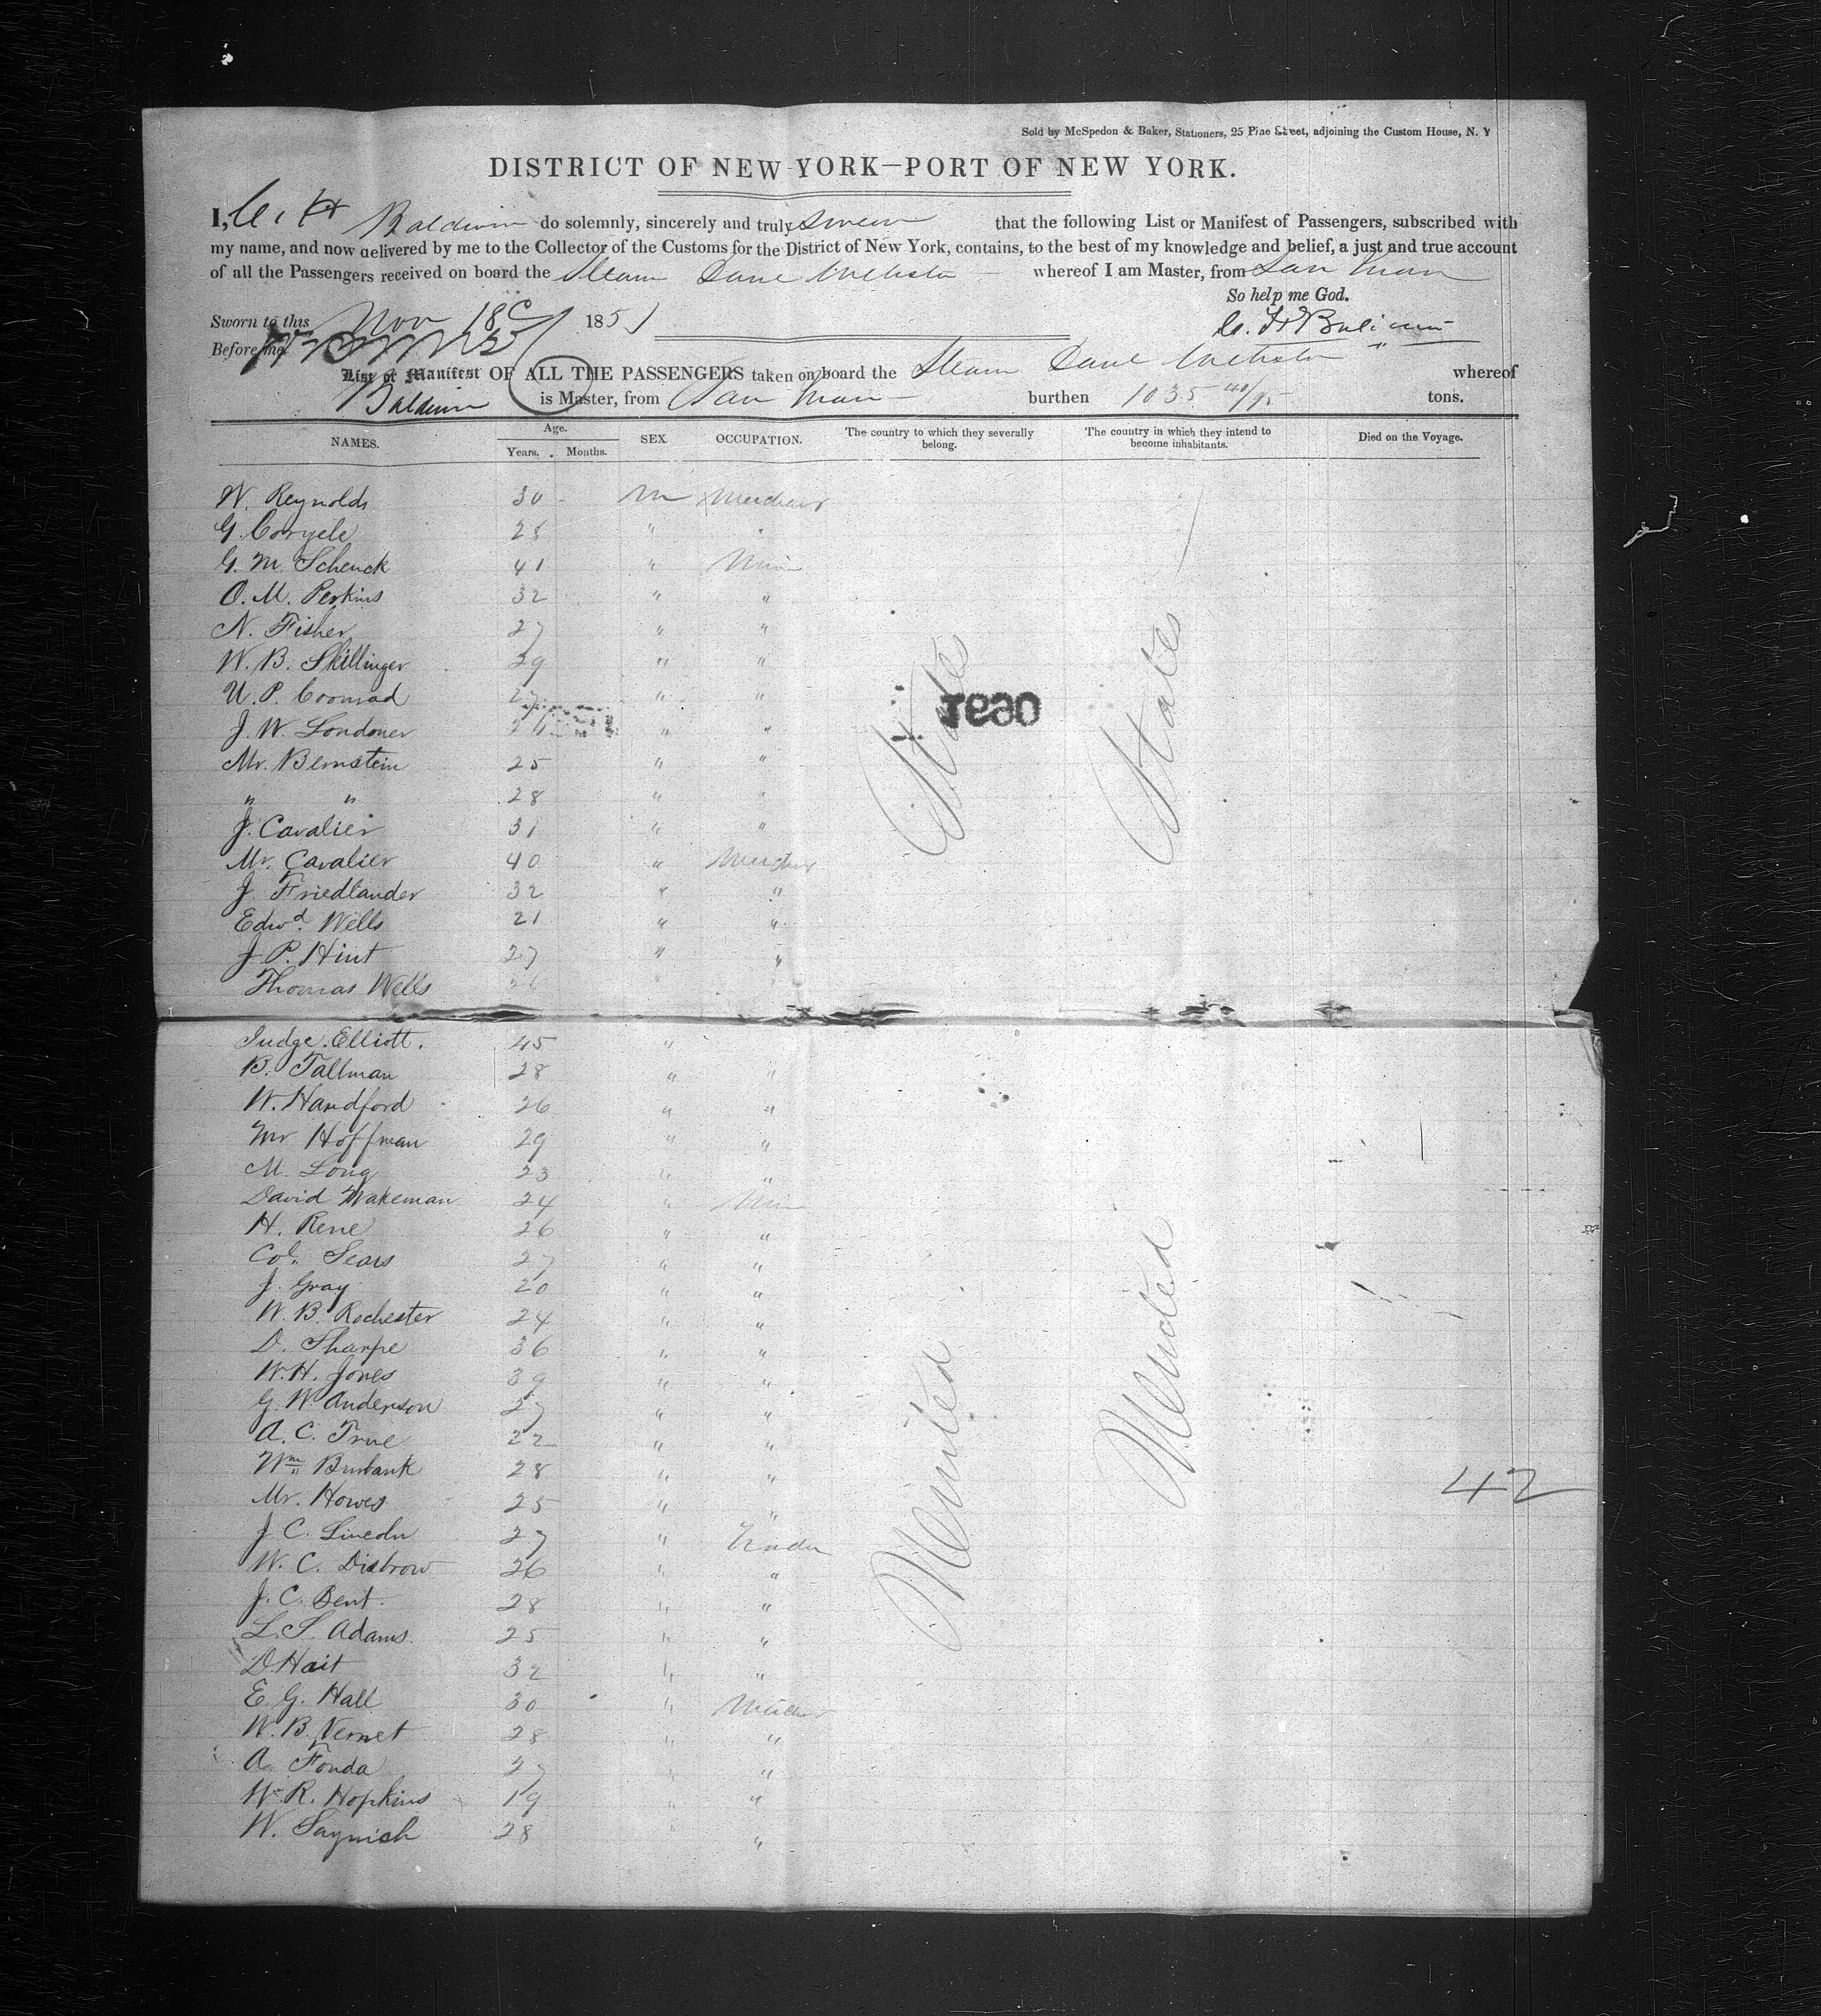 Sold by McSpedon & Baker, Stationers, 25 Pine Street, adjoining the Custom House, N. Y
DISTRICT OF NEW YORK—PORT OF NEW YORK.
I, C. H Baldwin do solemnly, sincerely and truly swear that the following List or Manifest of Passengers, subscribed with
my name, and now delivered by me to the Collector of the Customs for the District of New York, contains, to the best of my knowledge and belief, a just and true account
of all the Passengers received on board the Steam Danl Webster whereof I am Master, from San Juan
So help me God.
Sworn to this Nov 18 1851
C. H Baldwin
Before me
List or Manifest OF ALL THE PASSENGERS taken on board the Steam Danl Webster whereof
Baldwin is Master, from San Juan burthen 1035 40/95 tons.
NAMES. Age. Years. Months. SEX. OCCUPATION. The country to which they severally belong. The country in which they intend to become inhabitants. Died on the Voyage.
W. Reynolds 30 M Merchant
G. Coryele 28 "
G. M. Schenck 41 " Min
O. M. Perkins 32 " "
N. Fisher 27 " "
W. B. Skillinger 29 " "
U. P. Coonrad 27 " "
J. W. Londoner " "
Mr. Bernstein 25 " "
" " 28 " "
J. Cavalier 31 " "
Mr. Cavalier 40 " Merchr
J. Friedlander 32 " "
Edwd. Wells 21 " "
J. P. Hint 27 " "
Thomas Wells 26
Judge Elliott. 45 "
B. Tallman 28 " "
W. Handford 26 " "
Mr Hoffman 29 " "
M. Long 23 " "
David Wakeman 24 " Min
H. Rene 26 " "
Col. Sears 27 " "
J. Gray 20 " "
W. B. Rochester 24 " "
D. Sharpe 36 " "
W. H. Jones 39 " "
G. W. Anderson 27 " "
A. C. True 22 " "
Wm Burbank 28 " "
Mr. Howes 25 " "
J. C. Lincoln 27 " Trader
W. C. Disbrow 26 " "
J. C. Bent. 28 " "
L. S. Adams. 25 " "
D. Hait 32 " "
E. G. Hall 30 " Mercher
W. B. Vernet 28 " "
A. Fonda 27 " "
Wm R. Hopkins 19 " "
W. Saynish 28 " "
United States
United States
42